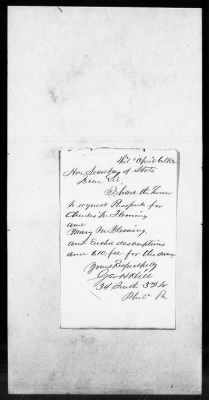 Phila April 6 1862
Hon Secretary of State
Dear Sir,
I have the honor
to request Passports for
Charles M. Fleming
and
Mary M. Fleming
and Enclose descriptions
and $10 fee for the same
Yours Respectfully
Geo H Hill
34 South 3rd St
Phila Pa